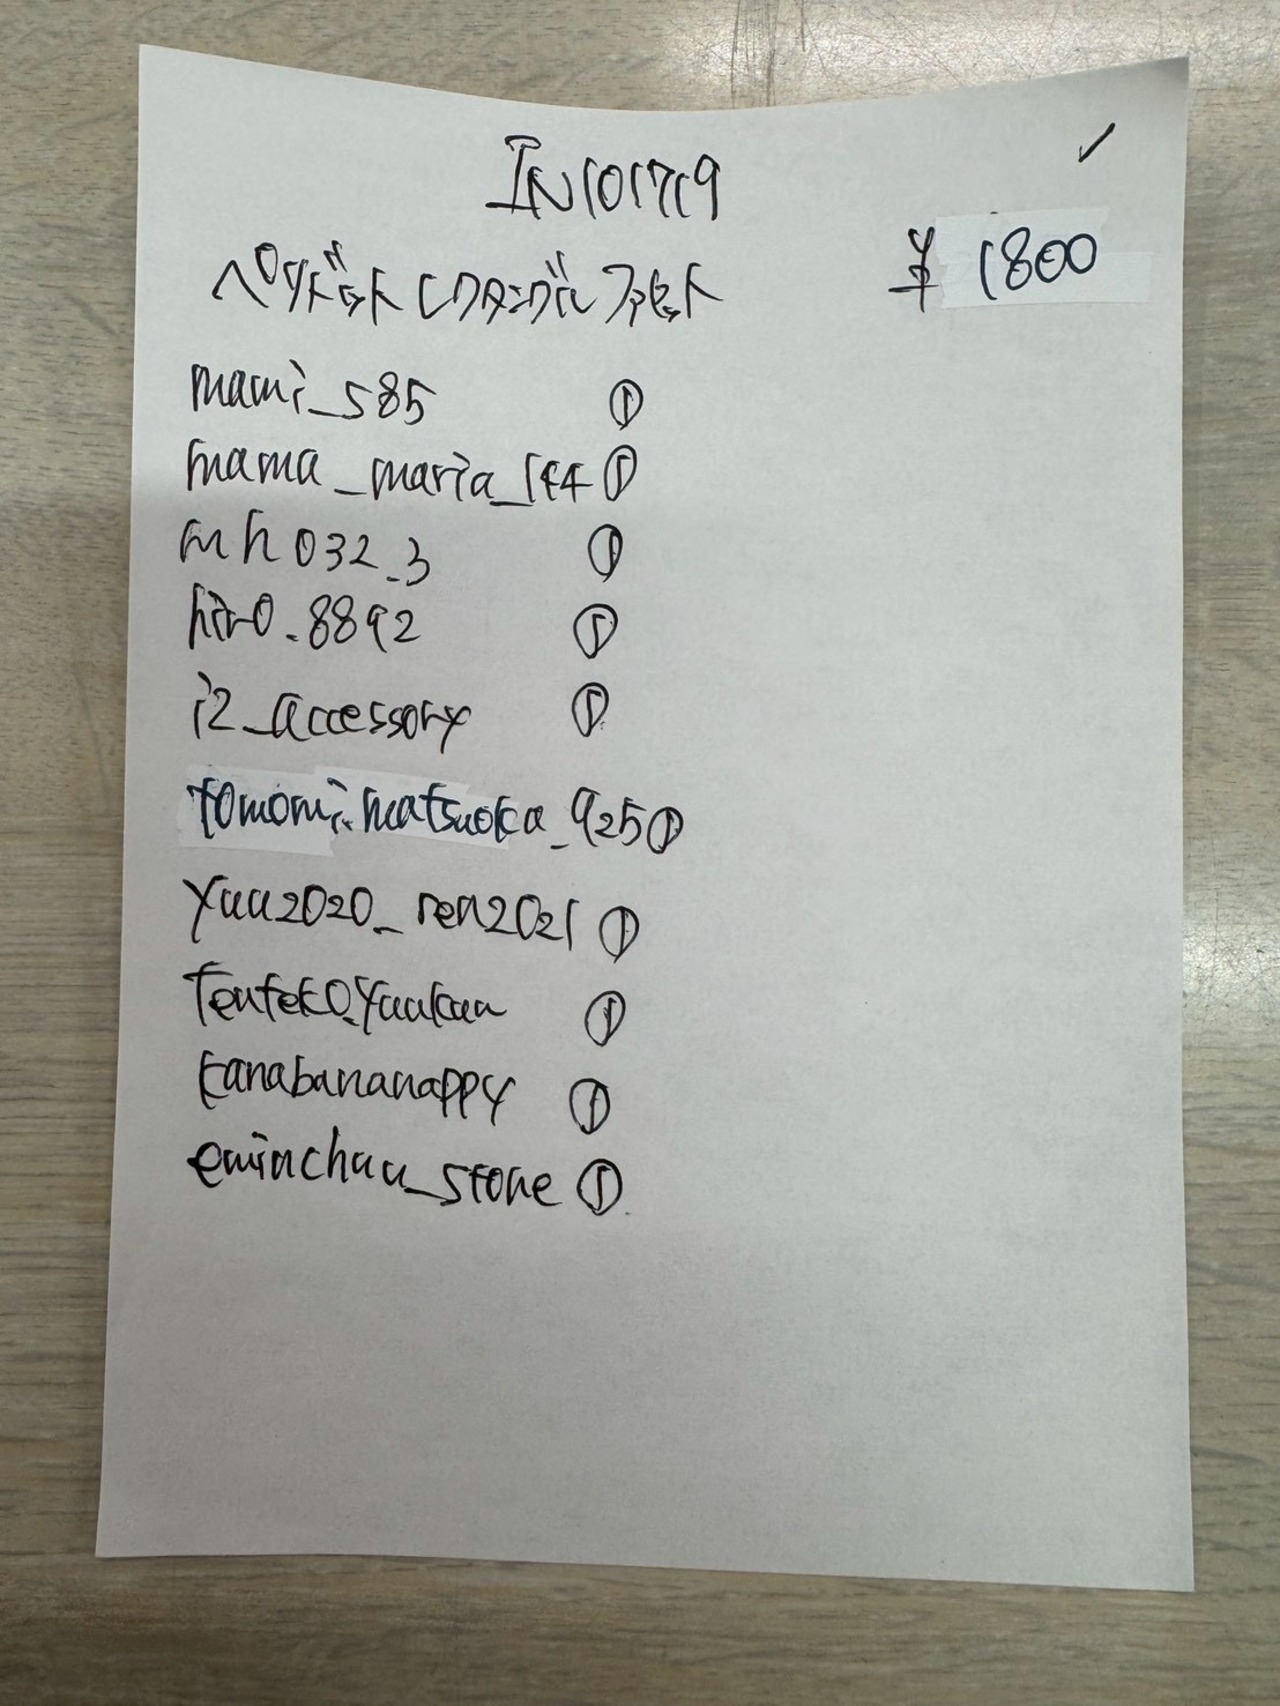 IN101719
ペリドットレクタングルファセット ¥1800
mami_s85 ①
mama_maria_144 ①
mh032_3 ①
hiro.8892 ①
i2_accessory ①
tomomi.matsuoka_925 ①
yuu2020_ren2021 ①
tenteko.yuukun ①
kanabananappy ①
eminchuu_stone ①